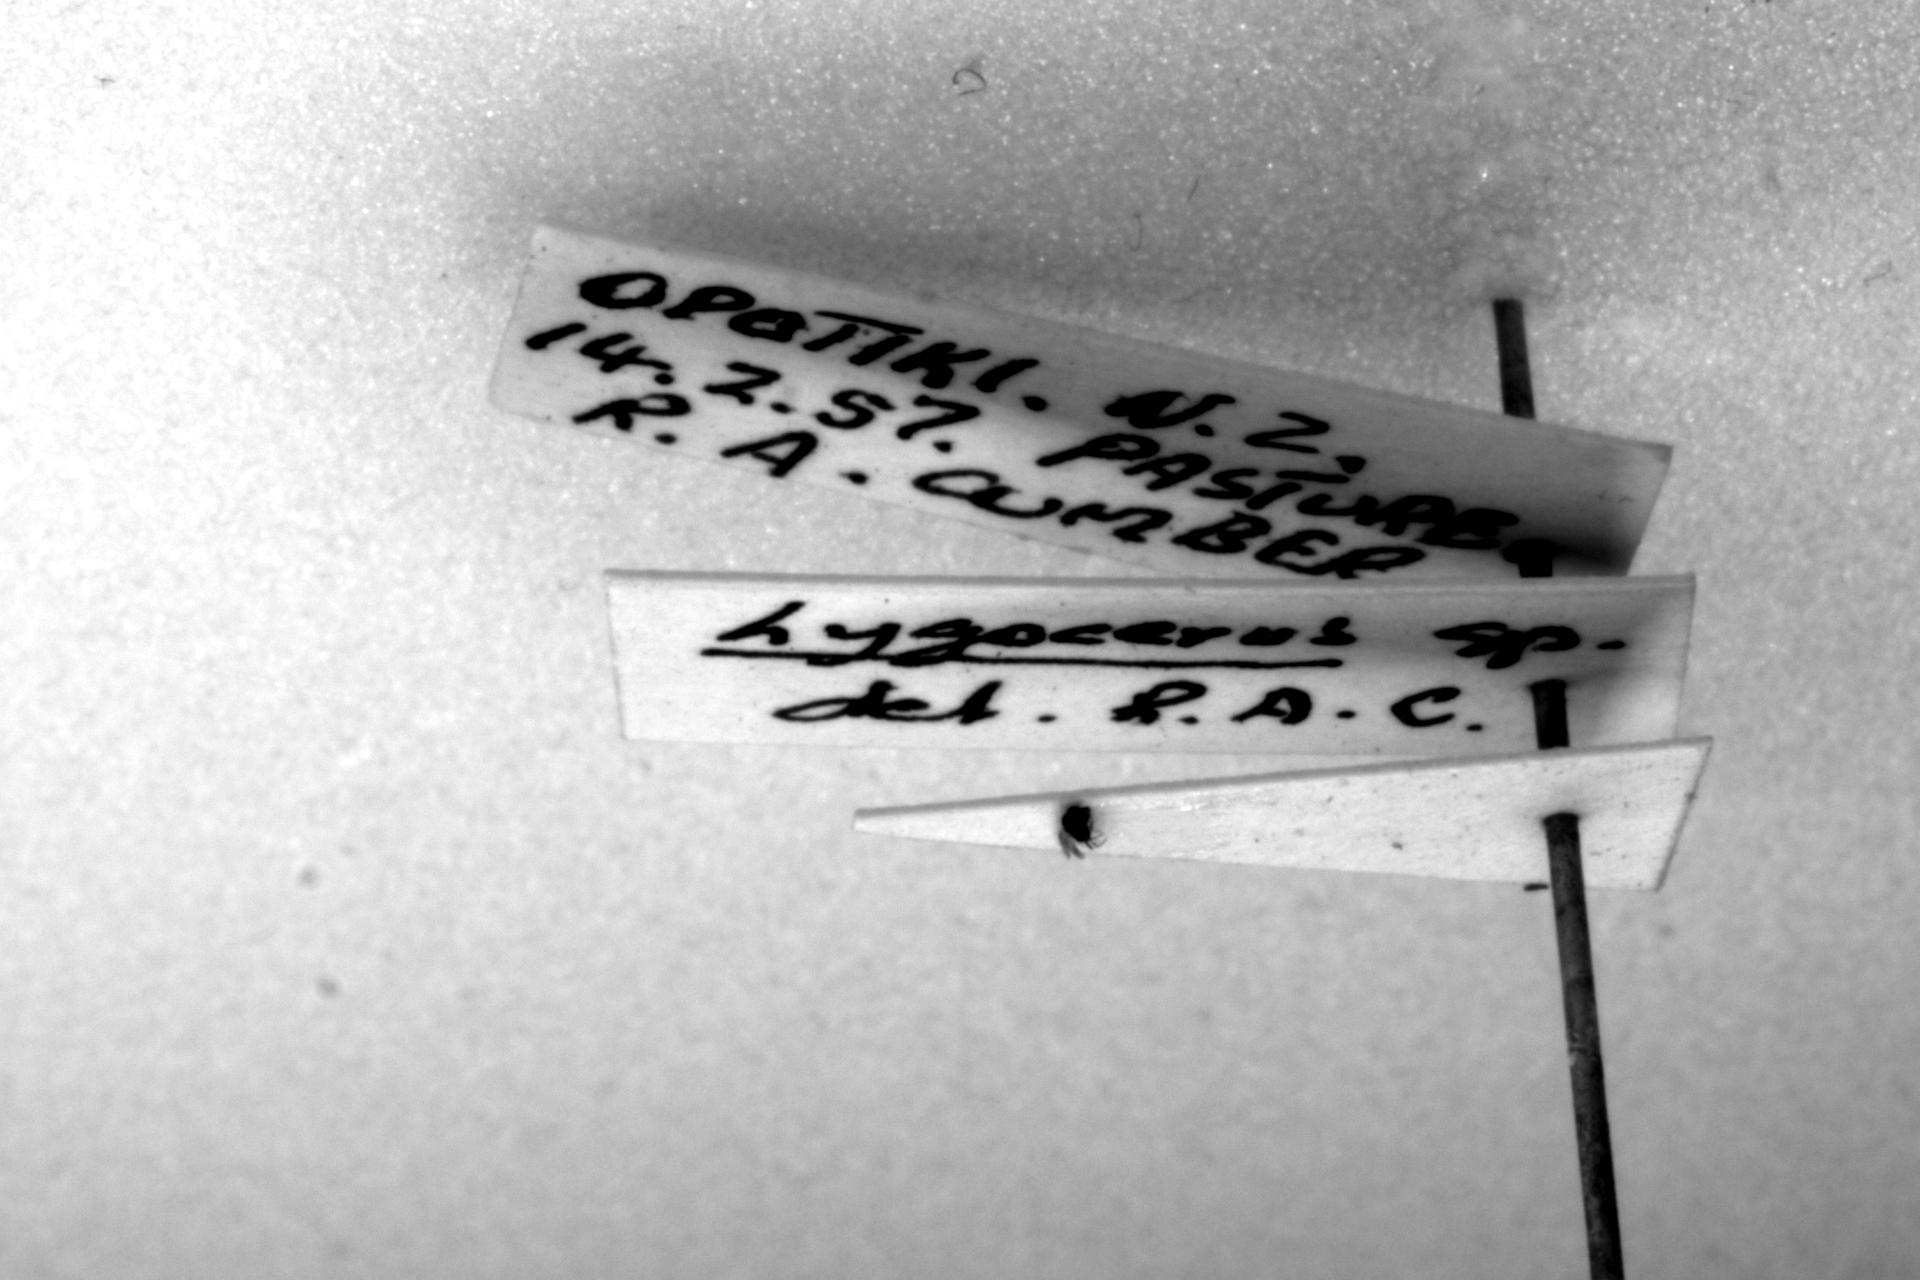 OPOTIKI. N.Z.
14.2.57. PASTURE.
R. A. CUMBER
Lygocerus sp.
det. R.A.C.